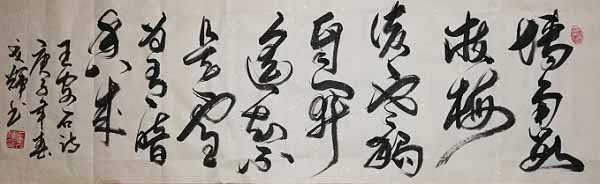 墙角数
枝梅
凌寒独
自开
遥知不
是雪
为有暗
香来
王安石诗
庚子年春
文辉书